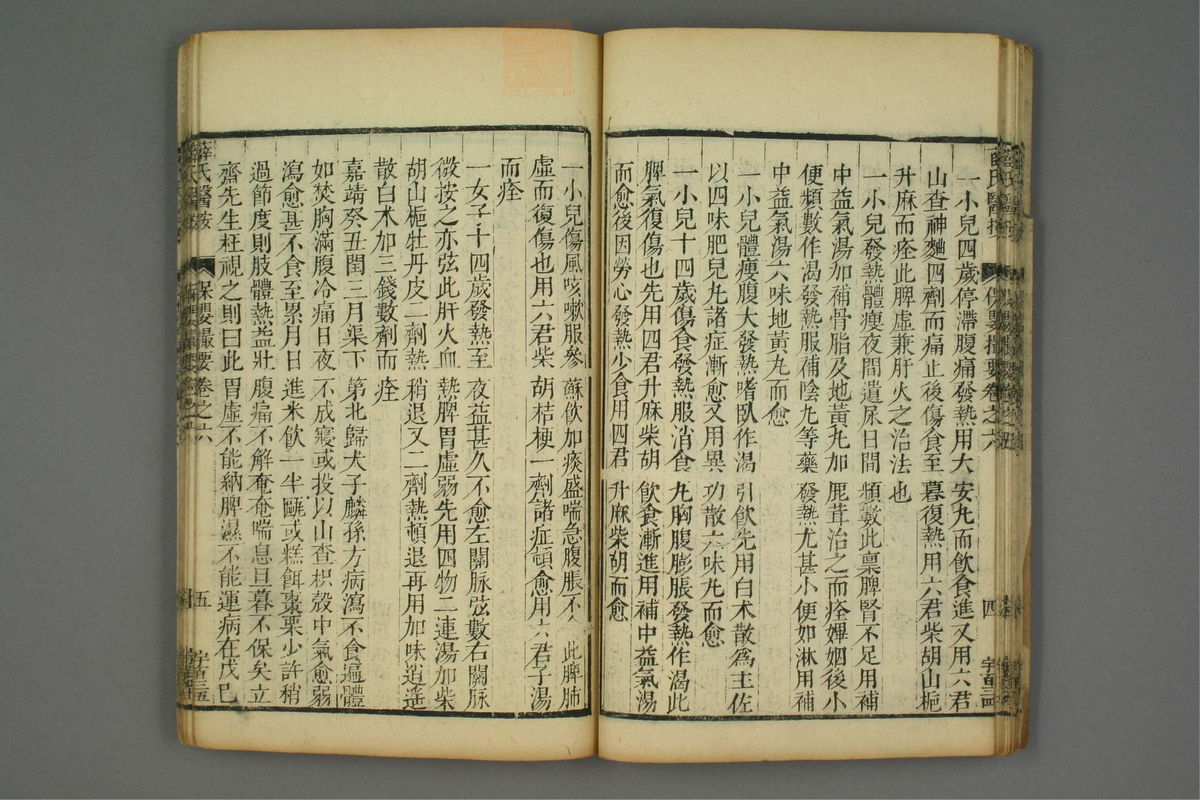 一小兒四歲停滯腹痛發熱用大安丸而飲食進又用六君
山查神麯四劑而痛止後傷食至暮復熱用六君柴胡山梔
升麻而痊此脾虛兼肝火之治法也
一小兒發熱體瘦夜間遺尿日間頻數此稟脾腎不足用補
中益氣湯加補骨脂及地黃丸加鹿茸治之而痊嬅姻後小
便頻數作渴發熱服補陰丸等藥發熱尤甚小便如淋用補
中益氣湯六味地黃丸而愈
一小兒體瘦腹大發熱嗜臥作渴引飲先用白朮散為主佐
以四味肥兒丸諸症漸愈又用異功散六味丸而愈
一小兒十四歲傷食發熱服消食丸胸腹膨脹發熱作渴此
脾氣復傷也先用四君升麻柴胡飲食漸進用補中益氣湯
而愈後因勞心發熱少食用四君升麻柴胡而愈
薛氏醫按
保嬰撮要卷之六
四
一小兒傷風咳嗽服參蘇飲加痰盛喘急腹脹不食此脾肺
虛而復傷也用六君柴胡桔梗一劑諸症頓愈用六君子湯
而痊
一女子十四歲發熱至夜益甚久不愈左關脉弦數右關脉
微按之亦弦此肝火血熱脾胃虛弱先用四物二連湯加柴
胡山梔牡丹皮一劑熱稍退又二劑熱頓退再用加味逍遙
散白朮加三錢數劑而痊
嘉靖癸丑閏三月渠下第北歸犬子麟孫方病瀉不食遍體
如焚胸滿腹冷痛日夜不成寢或投以山查枳殼中氣愈弱
瀉愈甚不食至累月日進米飲一半甌或糕餌棗栗少許稍
過節度則肢體熱益壯腹痛不解奄奄喘息旦暮不保矣立
齋先生枉視之則曰此胃虛不能納脾濕不能運病在戊己
薛氏醫按
保嬰撮要卷之六
五